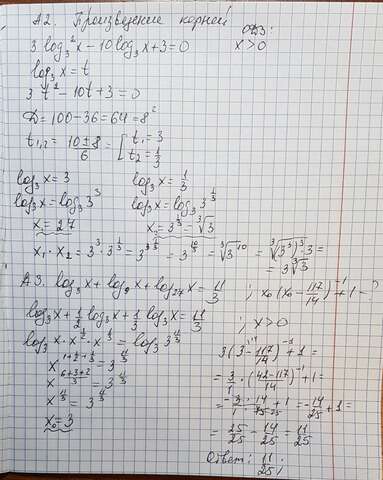 А2. Произведение корней
3 log₃²x − 10 log₃x + 3 = 0 ОДЗ: x > 0
log₃x = t
3t² − 10t + 3 = 0
D = 100 − 36 = 64 = 8²
t₁,₂ = (10 ± 8)/6 = [ t₁ = 3 t₂ = 1/3
log₃x = 3 log₃x = 1/3
log₃x = log₃3³ log₃x = log₃3^(1/3)
x₁ = 27 x₂ = 3^(1/3) = ∛3
x₁ · x₂ = 3³ · 3^(1/3) = 3^(3 1/3) = 3^(10/3) = ∛(3¹⁰) = ∛((3³)³ · 3) =
= 3∛3
А3. log₃x + log₉x + log₂₇x = 11/3 ; x₀(x₀ − 117/14)⁻¹ + 1 − ?
log₃x + 1/2 log₃x + 1/3 log₃x = 11/3 ; x > 0
log₃x · x^(1/2) · x^(1/3) = log₃3^(11/3)
x^(1 + 1/2 + 1/3) = 3^(11/3) 3(3 − 117/14)⁻¹ + 1 =
x^((6+3+2)/3) = 3^(11/3) = 3/1 · ((42 − 117)/14)⁻¹ + 1 =
x^(11/3) = 3^(11/3) = −3/1 · 14/75 + 1 = −14/25 + 1 =
x₀ = 3 = 25/25 − 14/25 = 11/25
Ответ: 11/25.